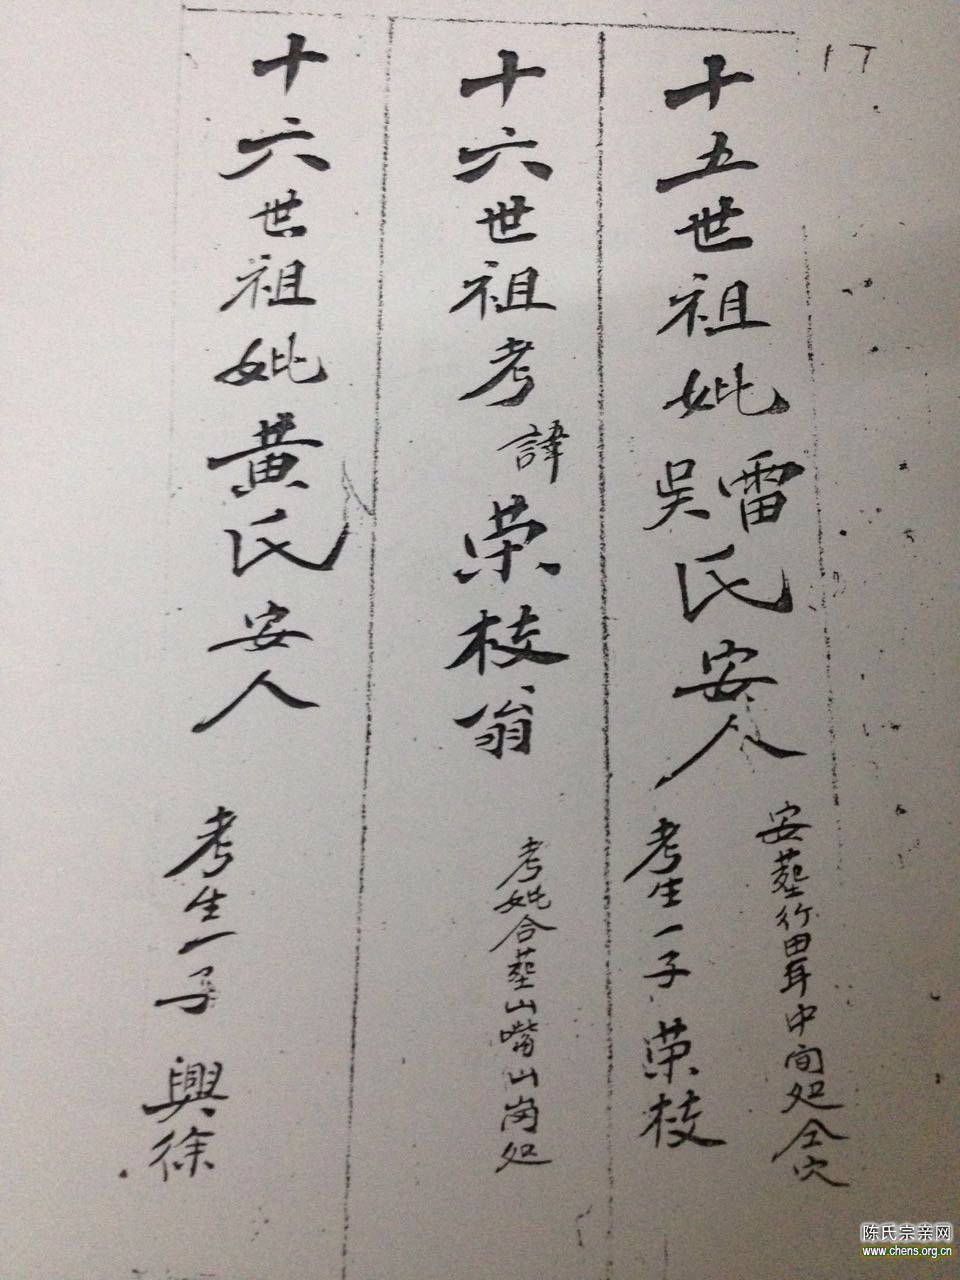 17
十五世祖妣雷吴氏安人
安葬竹田耳中间处仝穴
考生一子 荣枝
十六世祖考諱荣枝翁
考妣合葬山嘴山崗处
十六世祖妣黄氏安人
考生一子 興徐
陈氏宗亲网
www.chens.org.cn